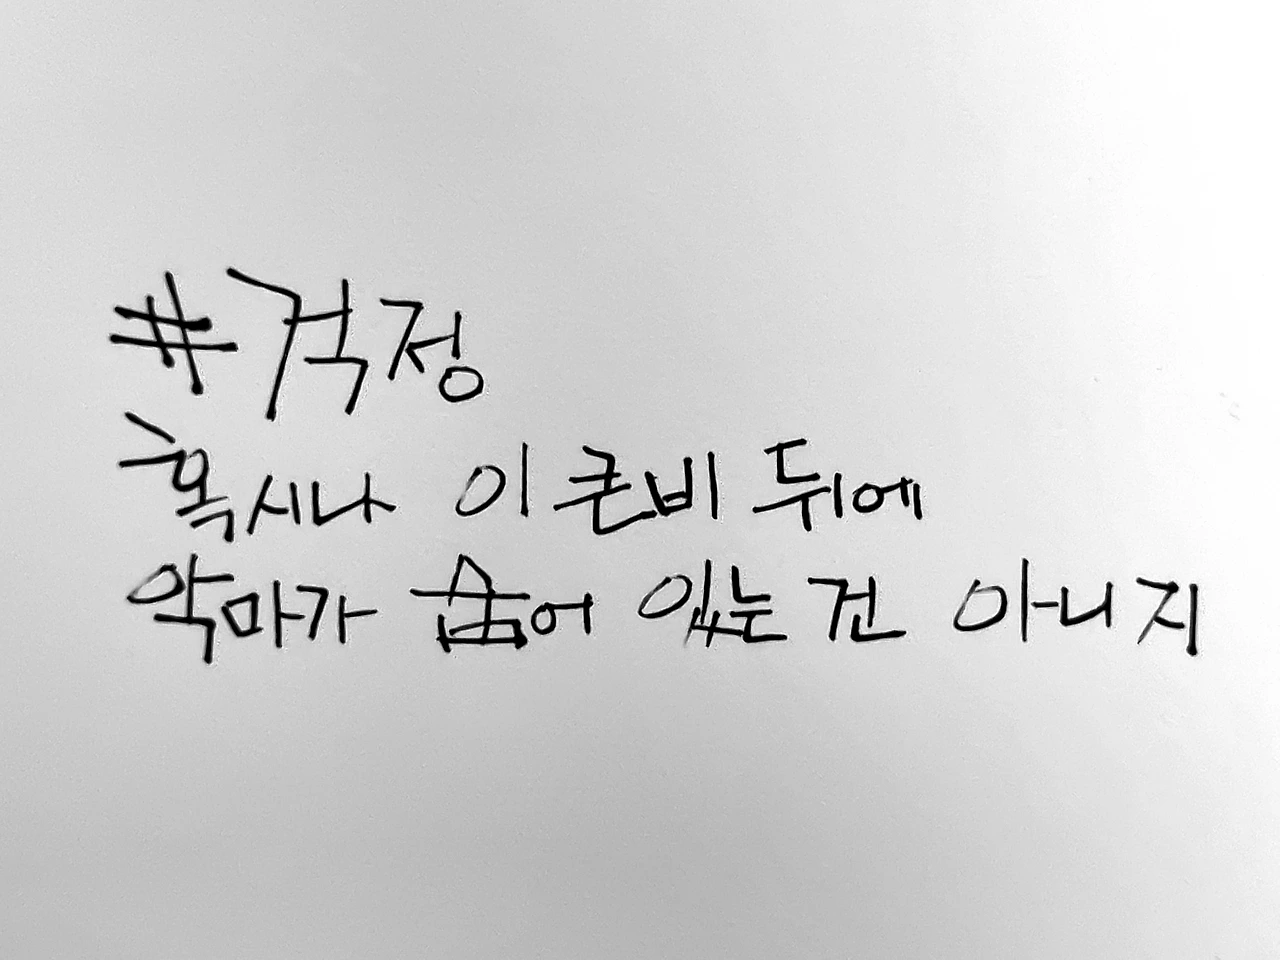 #걱정
혹시나 이 큰비 뒤에
악마가 숨어 있는 건 아니지